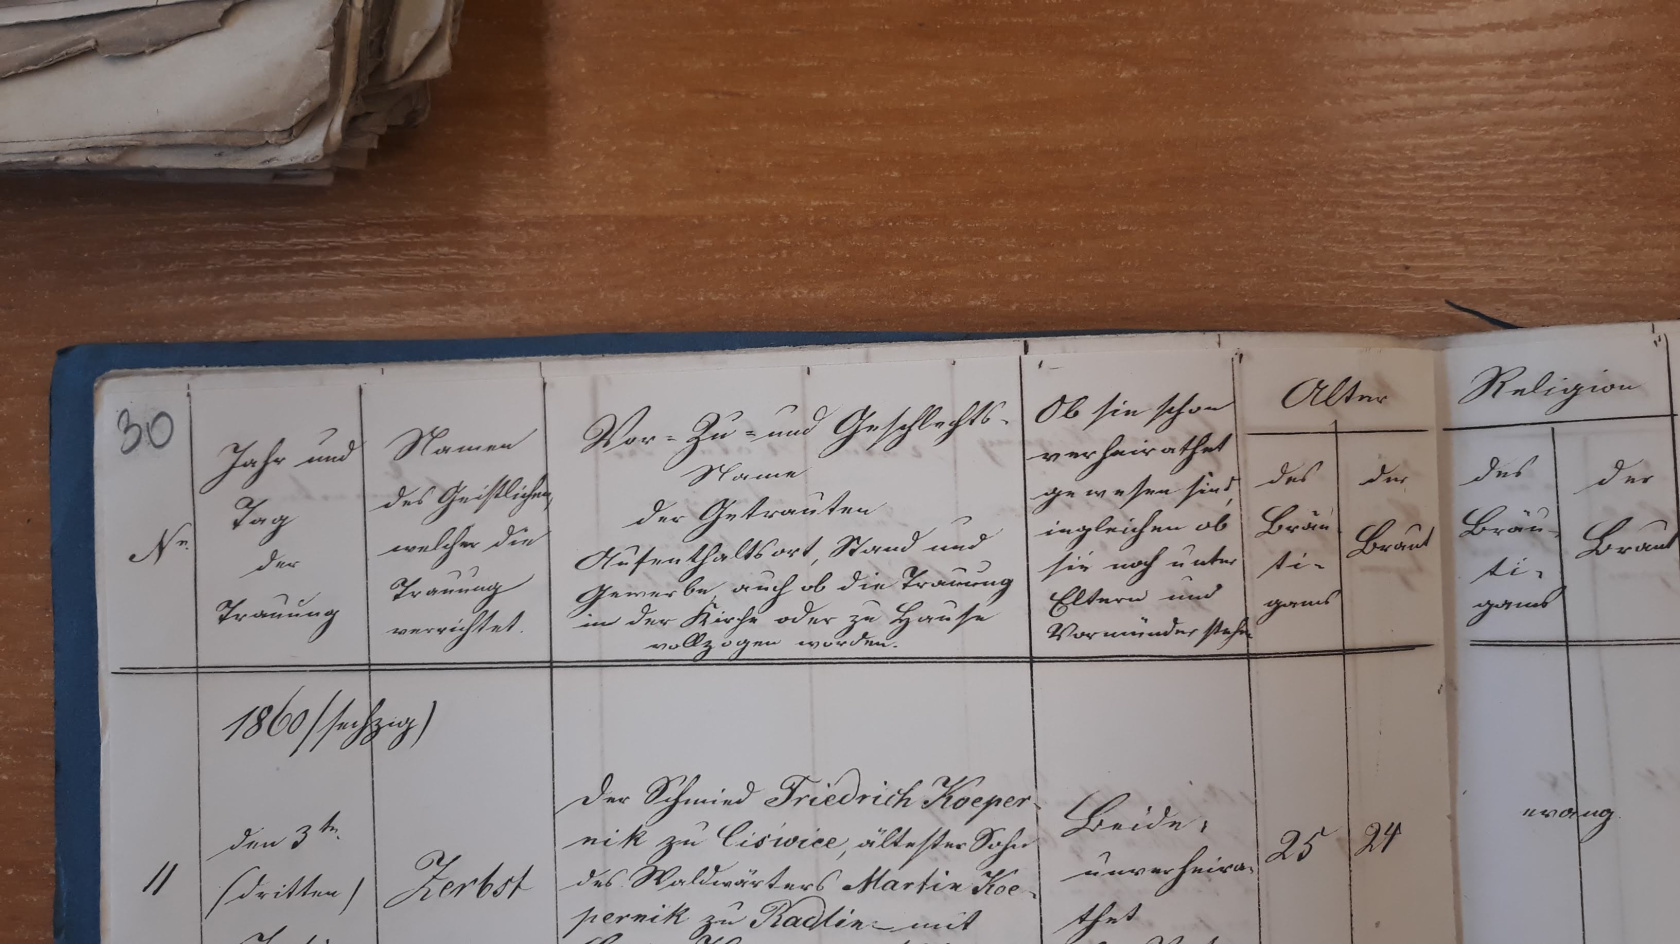 30
Nr.
Jahr und
Tag
der
Trauung
Namen
des Geistlichen,
welcher die
Trauung
verrichtet.
Vor- Zu- und Geschlechts-
Name
der Getrauten
Aufenthaltsort, Stand und
Gewerbe, auch ob die Trauung
in der Kirche oder zu Hause
vollzogen worden.
Ob sie schon
verheirathet
gewesen sind,
ingleichen ob
sie noch unter
Eltern und
Vormünder stehen
Alter
des
Bräu-
ti-
gams
der
Braut
Religion
des
Bräu-
ti-
gams
der
Braut
1860 (sechzig)
11
den 3ten
(dritten)
Zerbst
Der Schmied Friedrich Koeper-
nik zu Ciświce, ältester Sohn
des Waldwärters Martin Koe-
pernik zu Radlin mit
Beide
unverheira-
thet
25
24
evang.